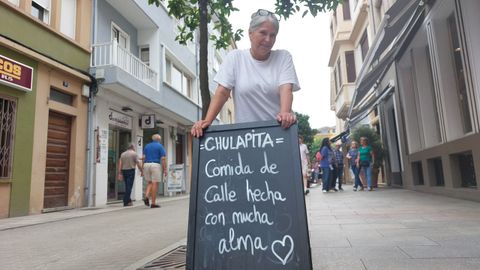 =CHULAPITA=
Comida de
Calle hecha
con mucha
alma ♡